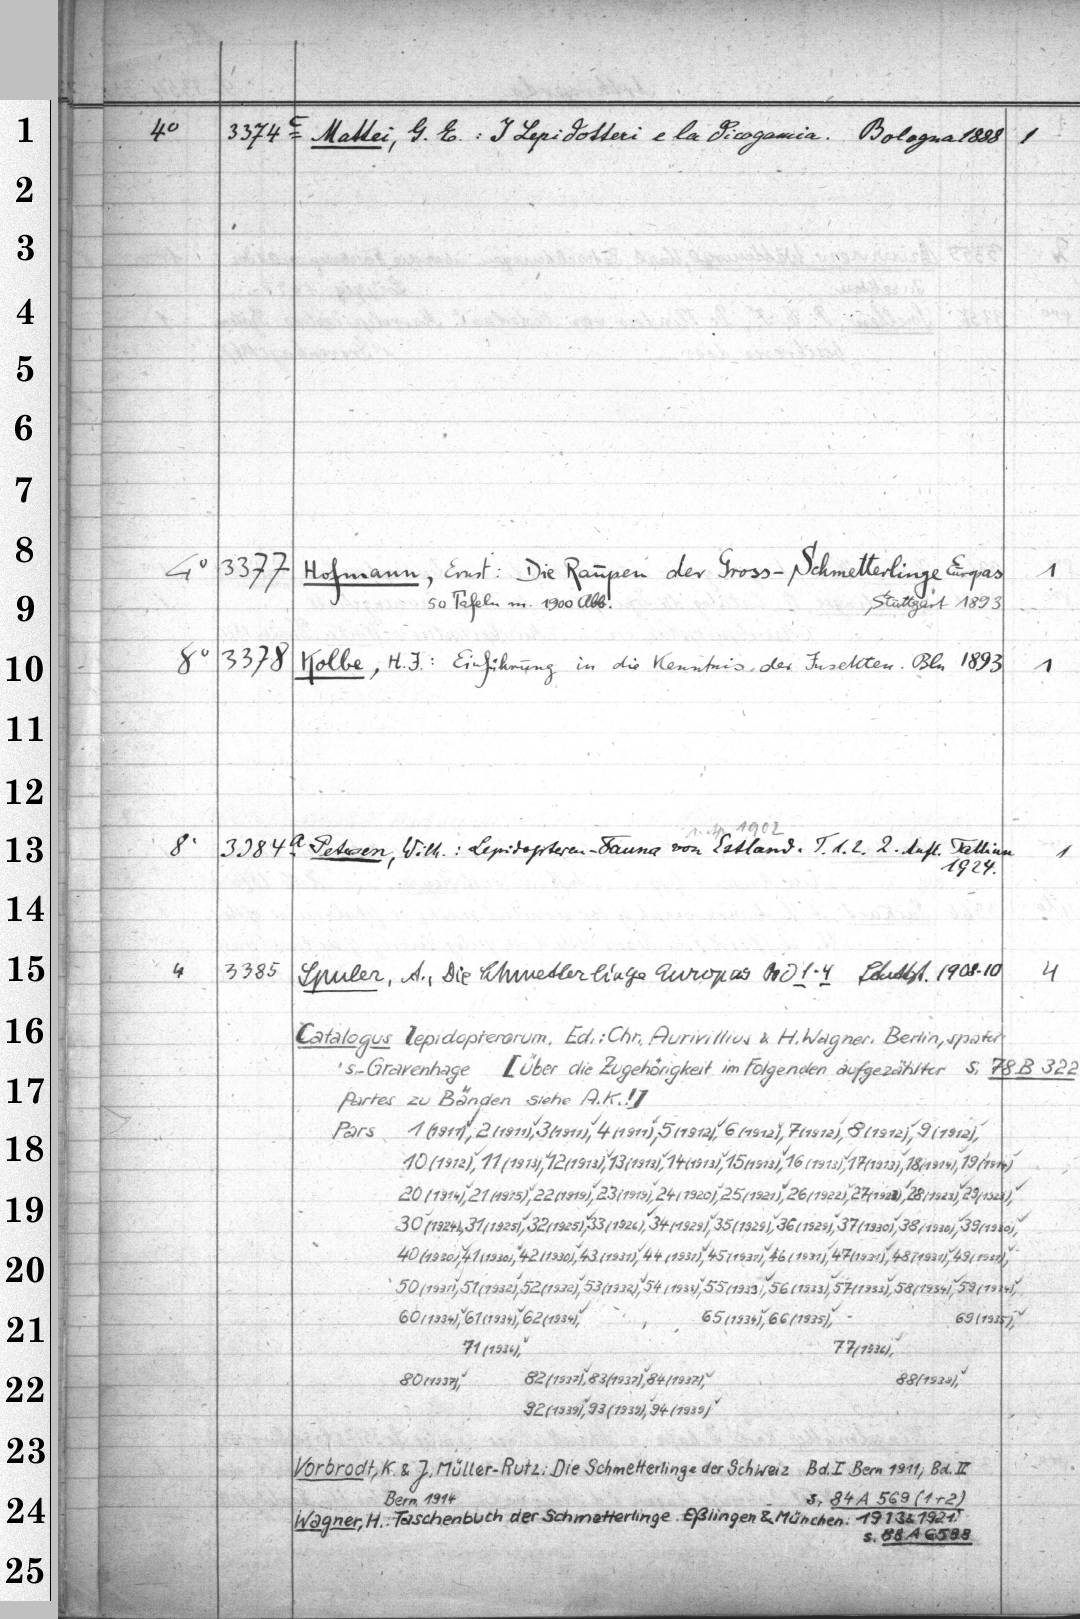 1
4o 3374 c Mattei, G. E. : I Lepidotteri e la Dicogamia. Bologna 1888 1
2
3
4
5
6
7
8
4o 3377 Hofmann, Ernst: Die Raupen der Gross-Schmetterlinge Europas 1
9
50 Tafeln m. 1900 Abb. Stuttgart 1893
10
8o 3378 Kolbe, H.J.: Einführung in die Kenntnis der Insekten. Bln 1893 1
11
12
1902
13
8° 3384 a Petersen, Wilh.: Lepidopteren-Fauna von Estland. T.1.2. 2. Aufl. Tallinn 1
1924.
14
15
4 3385 Spuler, A., Die Schmetterlinge Europas BD 1-4 Stuttgt. 1908-10 4
16
Catalogus lepidopterorum. Ed.: Chr. Aurivillius & H. Wagner. Berlin, später
's-Gravenhage [Über die Zugehörigkeit im Folgenden aufgezählter s. 78 B 322
17
Partes zu Bänden siehe A.K.!]
Pars 1(1911), 2(1911), 3(1911), 4(1911), 5(1912), 6(1912), 7(1912), 8(1912), 9(1912),
18
10(1912), 11(1913), 12(1913), 13(1913), 14(1913), 15(1913), 16(1913), 17(1913), 18(1914), 19(1914)
20(1914), 21(1915), 22(1919), 23(1919), 24(1920), 25(1921), 26(1922), 27(1923), 28(1923), 29(1923),
19
30(1924), 31(1925), 32(1925), 33(1926), 34(1929), 35(1929), 36(1929), 37(1930), 38(1930), 39(1930),
40(1930), 41(1930), 42(1930), 43(1931), 44(1931), 45(1931), 46(1931), 47(1931), 48(1931), 49(1931),
20
50(1931), 51(1932), 52(1932), 53(1932), 54(1933), 55(1933), 56(1933), 57(1933), 58(1934), 59(1934),
60(1934), 61(1934), 62(1934), 65(1934), 66(1935), 69(1935),
21
71(1936), 77(1936),
22
80(1937), 82(1937), 83(1937), 84(1937), 88(1938),
92(1939), 93(1939), 94(1939)
23
Vorbrodt, K. & J. Müller-Rutz: Die Schmetterlinge der Schweiz Bd. I Bern 1911, Bd. II
Bern 1914 s. 84 A 569 (1+2)
24
Wagner, H.: Taschenbuch der Schmetterlinge. Eßlingen & München. 1913 & 1921.
s. 88 A 6588
25